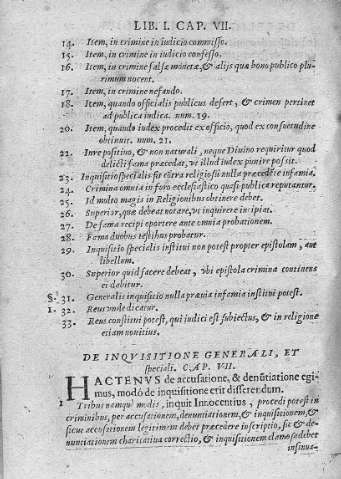 LIB. I. CAP. VII.
14. Item, in crimine in iudicio commisso.
15. Item, in crimine in iudicio confesso.
16. Item, in crimine falsæ monetæ, & alijs quæ bono publico plu-
rimum nocent.
17. Item, in crimine nefando.
18. Item, quando officialis publicus defert, & crimen pertinet
ad publica iudica. num. 19.
20. Item, quando iudex procedit ex officio, quod ex consuetudine
obtinuit. num. 21.
22. In re positiuo, & non naturali, neque Diuino requiritur quod
delicti fama præcedat, vt illud iudex punire possit.
23. Inquisitio specialis fit cõtra religiosū nulla præcedēte infamia.
24. Crimina omnia in foro ecclesiastico quasi publica reputantur.
25. Id multo magis in Religionibus obtinere debet.
26. Superior, quæ debeat notare, vt inquirere incipiat.
27. De fama recipi oportere ante omnia probationem.
28. Fama duobus testibus probatur.
29. Inquisitio specialis institui non potest propter epistolam, aut
libellum.
30. Superior quid facere debeat, vbi epistola crimina continens
ei dabitur.
§. 31. Generalis inquisitio nulla præuia infamia institui potest.
1. 32. Reus vnde dicatur.
33. Reus constitui potest, qui iudici est subiectus, & in religione
etiam nouitius.
DE INQVISITIONE GENERALI, ET
speciali. CAP. VII.
HACTENVS de accusatione, & denūtiatione egi-
mus, modò de inquisitione erit disserendum.
1 Tribus namque modis, inquit Innocentius, procedi potest in
criminibus, per accusationem, denuntiationem, & inquisitionem, &
sicut accusationem legitimam debet præcedere inscriptio, sic & de-
nuntiationem charitatiua correctio, & inquisitionem clamosa debet
insinua-